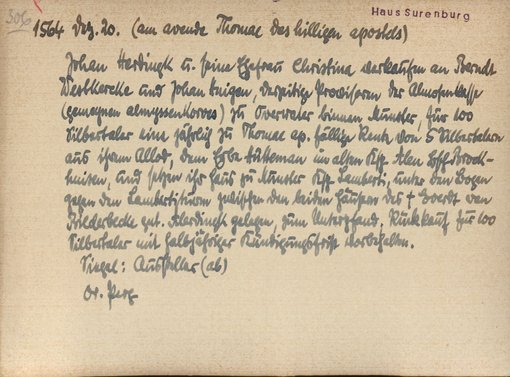 306
Haus Surenburg
1564 Dez. 20. (am avende Thomae des hilligen apostels)
Johan Herdingk u. seine Ehefrau Christina verkaufen an Berndt
Westkercke und Johan Knigen, derzeitige Provisoren der Almosenkasse
(gemeynen almyssenkorves) zu Overwater binnen Munster, für 100
Silbertaler eine jährlich zu Thomae ap. fällige Rente von 5 Silbertalern
aus ihrem Allod, dem Erbe im alten Ksp. Alen Bschft. Brock-
husen, und setzen ihr Haus zu Munster Ksp. Lamberti, unter den Bogen
gegen den Lambertiturm zwischen den beiden Häusern des † Everdt van
Bilderbecke gnt. Alerdingk gelegen, zum Unterpfand. Rückkauf für 100
Silbertaler mit halbjähriger Kündigungsfrist vorbehalten.
Siegel: Aussteller (ab)
Or. Perg